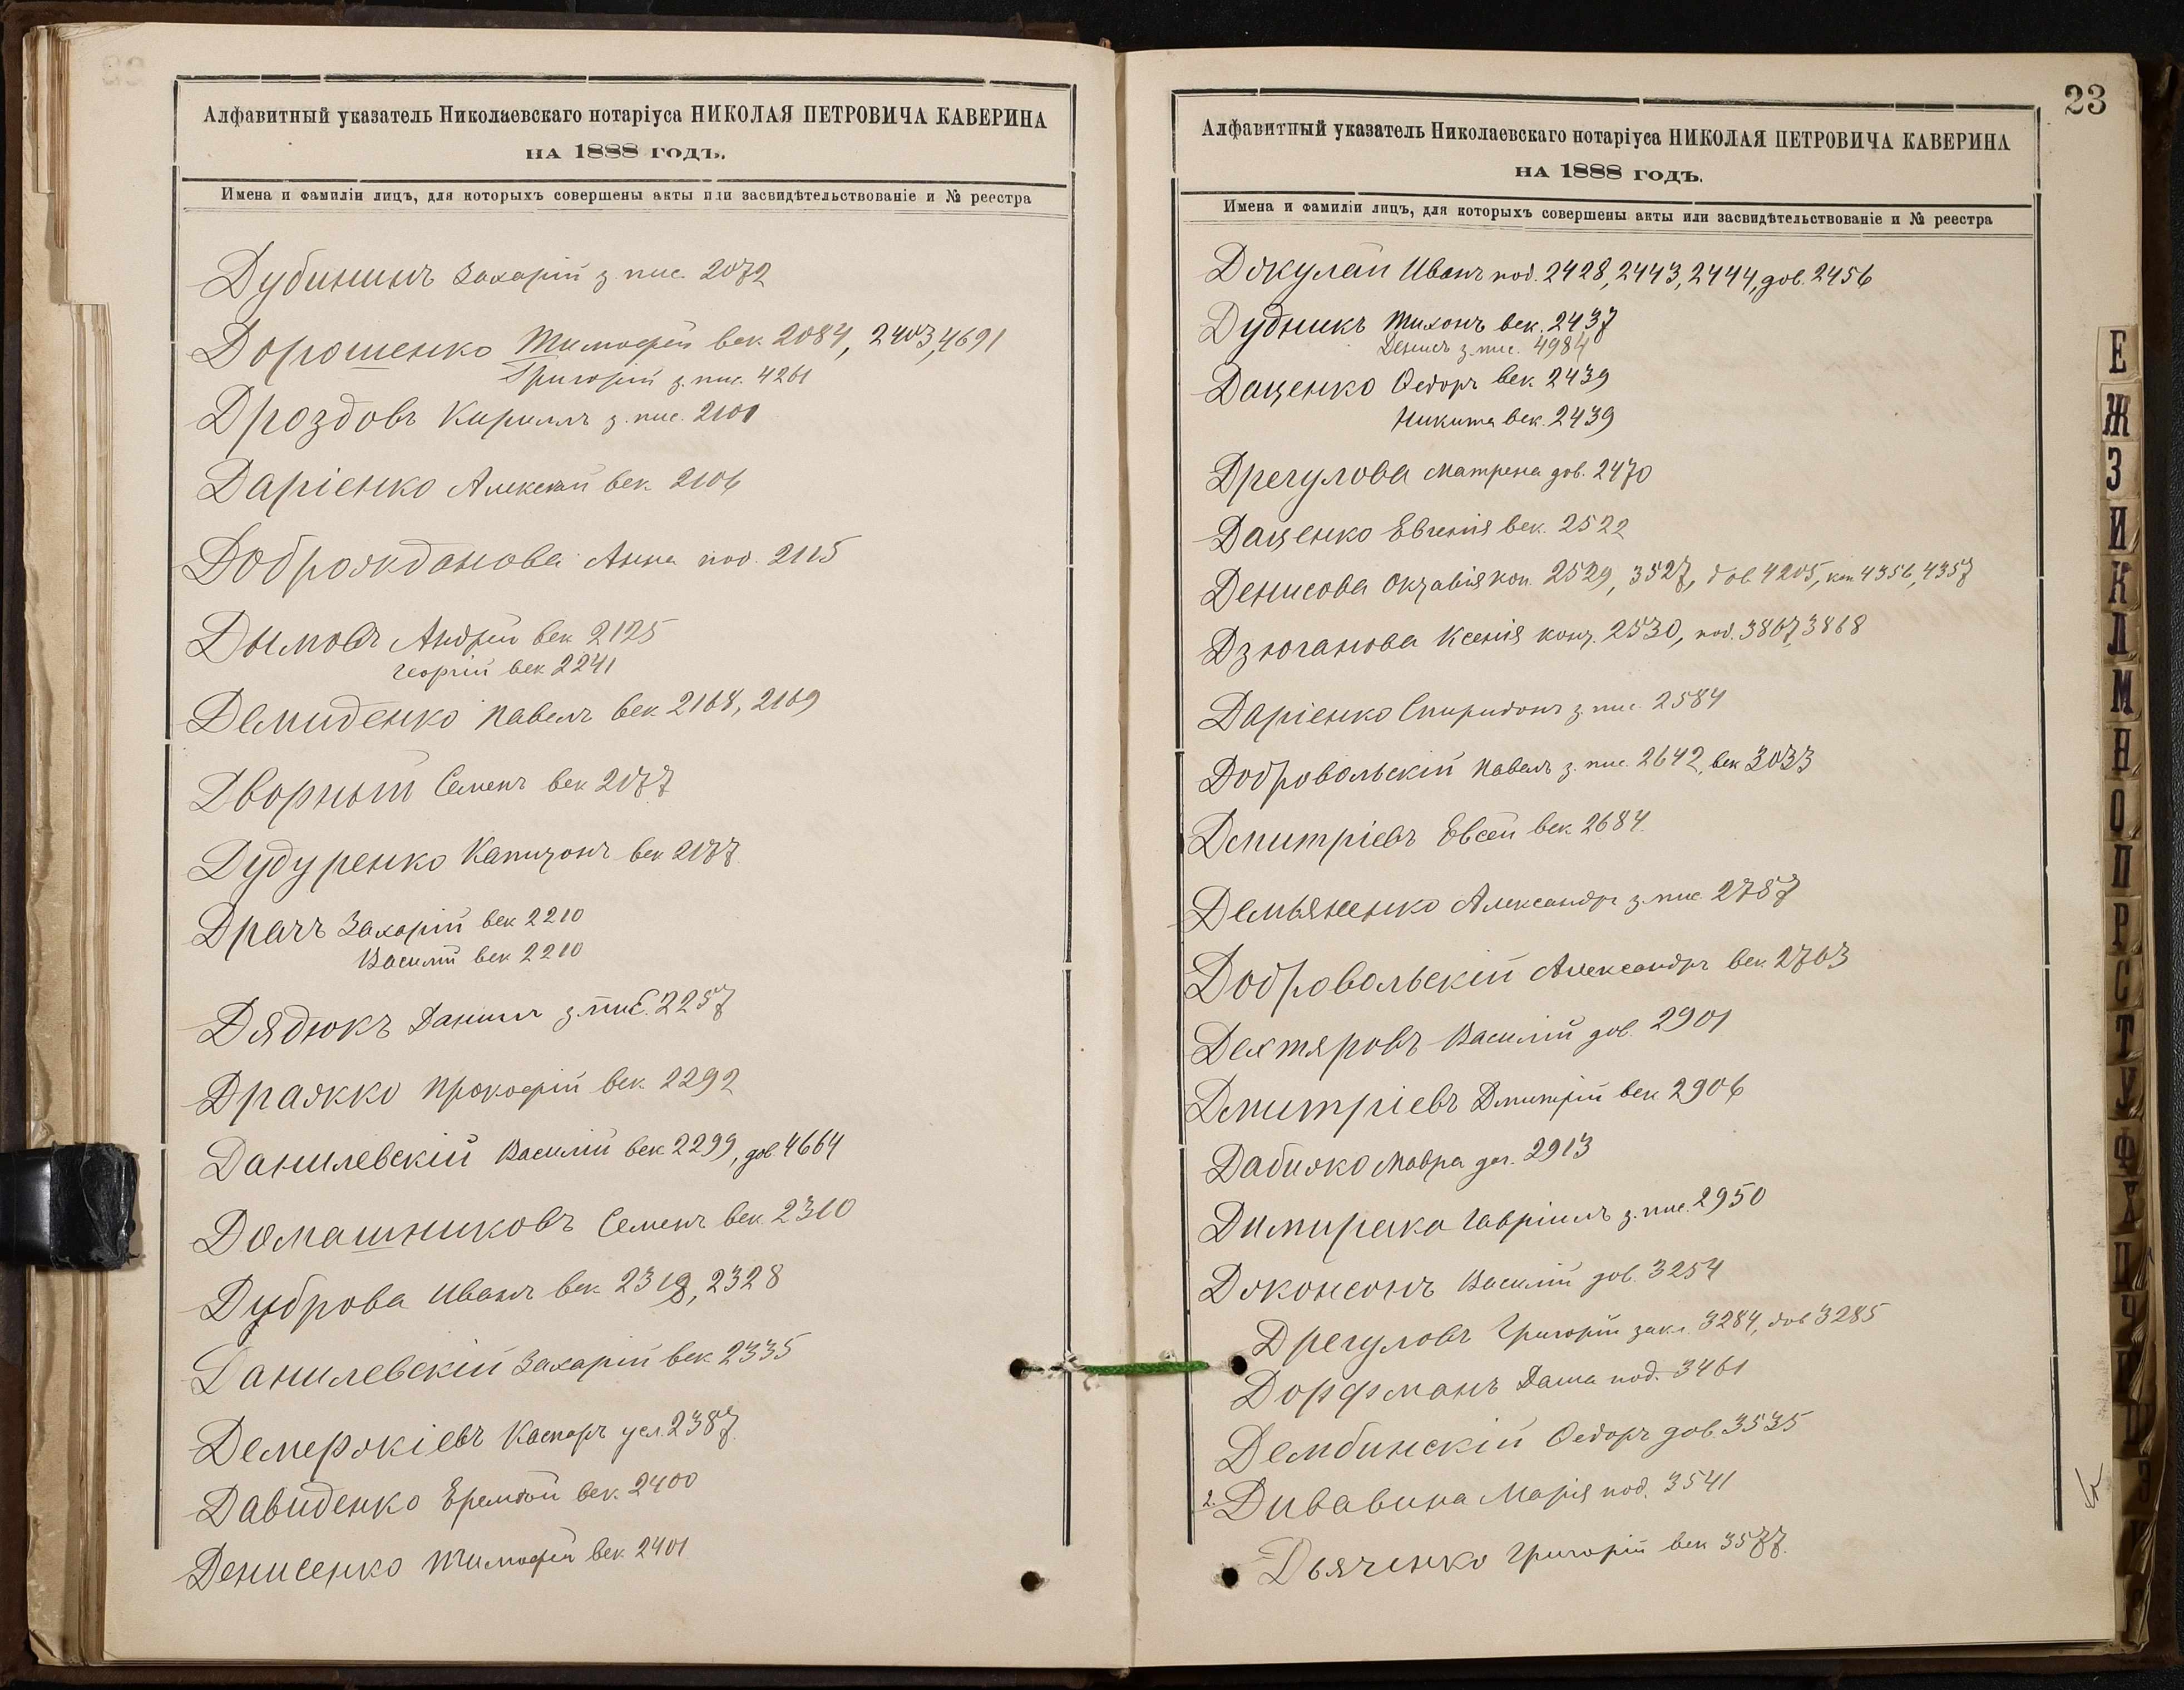 Алфавитный указатель Николаевскаго нотаріуса НИКОЛАЯ ПЕТРОВИЧА КАВЕРИНА
НА 1888 ГОДЪ.
Имена и фамиліи лицъ, для которыхъ совершены акты или засвидѣтельствованіе и № реестра
Дубининъ Захарій з. пис. 2072
Дорошенко Тимофей век. 2084, 2403, 4691
Григорій з. пис. 4261
Дроздовъ Кириллъ з. пис. 2100
Даріенко Алексей век. 2106
Доброжданова Анна под. 2115
Дымовъ Андрей век 2125
Георгій век 2241
Демиденко Павелъ век. 2168, 2169
Дворный Семенъ век 2177
Дудуренко Капитонъ век 2177
Драчъ Захарій век 2210
Василій век 2210
Дядюкъ Данилъ з. пис. 2257
Дражко Прокофій век. 2292
Данилевскій Василій век 2299, дов. 4664
Домашниковъ Семенъ век. 2310
Дуброва Иванъ век. 2318, 2328
Данилевскій Захарій век. 2335
Демержіевъ Каспаръ усл. 2387
Давиденко Еремей век. 2400
Денисенко Тимофей век. 2401
23
Алфавитный указатель Николаевскаго нотаріуса НИКОЛАЯ ПЕТРОВИЧА КАВЕРИНА
НА 1888 ГОДЪ.
Имена и фамиліи лицъ, для которыхъ совершены акты или засвидѣтельствованіе и № реестра
Джулай Иванъ под. 2428, 2443, 2444, дов. 2456
Дудникъ Тихонъ век. 2437
Денисъ з. пис. 4984
Даценко Федоръ век. 2439
Никита век. 2439
Дрегулова Матрена дов. 2470
Даценко Евгенія век. 2522
Денисова Октавія коп. 2529, 3527, дов. 4205, коп 4356, 4357
Дзюганова Ксенія 2530, под. 3867, 3868
Даріенко Спиридонъ з. пис. 2584
Добровольскій Павелъ з. пис. 2642, век 3033
Дмитріевъ Евсей век. 2684
Демьяненко Александръ з. пис. 2757
Добровольскій Александръ век. 2763
Дехтяровъ Василій дов. 2901
Дмитріевъ Дмитрій век 2906
Дабижа Мавра 2913
Гавріилъ з. пис. 2950
Джонсонъ Василій дов. 3254
Дрегуловъ Григорій 3284, дов 3285
Дорфманъ Даша под. 3461
Дембинскій Федоръ дов. 3535
2. Дивавина Марія под. 3541
Дьяченко Григорій век 3577
Е
Ж
З
И
К
Л
М
Н
О
П
Р
С
Т
У
Ф
Х
Ц
Ч